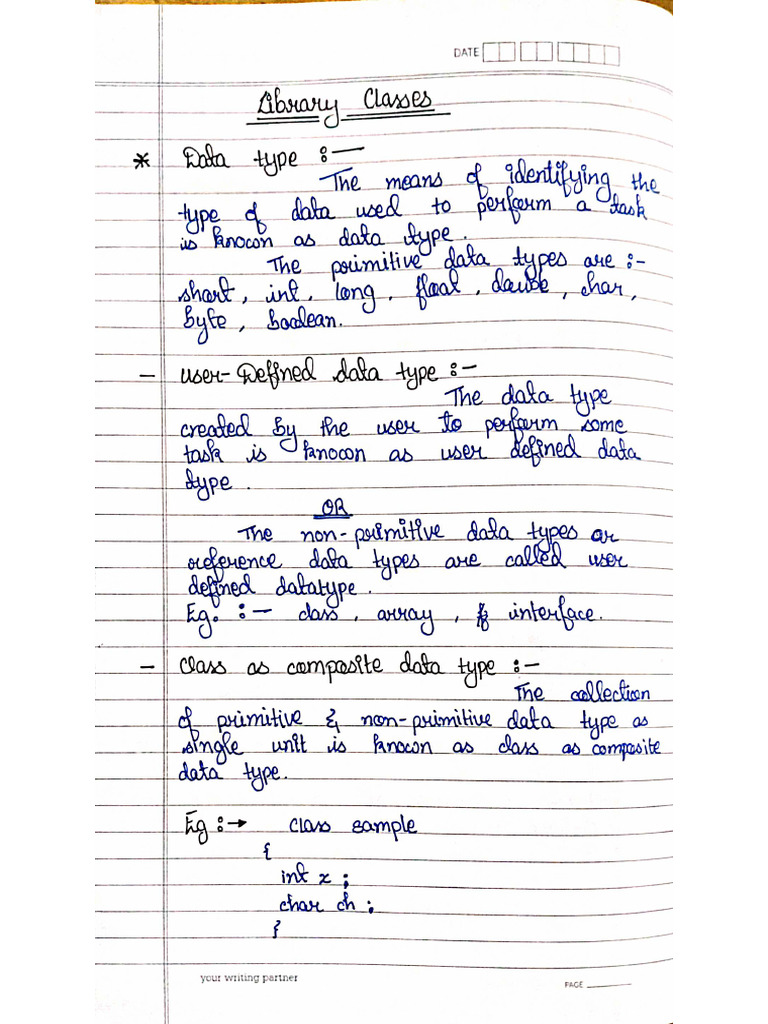 DATE
Library Classes
* Data type :—
The means of identifying the
type of data used to perform a task
is known as data type.
The primitive data types are :-
short, int, long, float, double, char,
byte, boolean.
- user-Defined data type :-
The data type
created by the user to perform some
task is known as user defined data
type.
OR
The non-primitive data types or
reference data types are called user
defined datatype.
Eg. :— class, array, & interface.
- Class as composite data type :-
The collection
of primitive & non-primitive data type as
single unit is known as class as composite
data type.
Eg :→ class sample
{
int x ;
char ch ;
{
your writing partner
PAGE